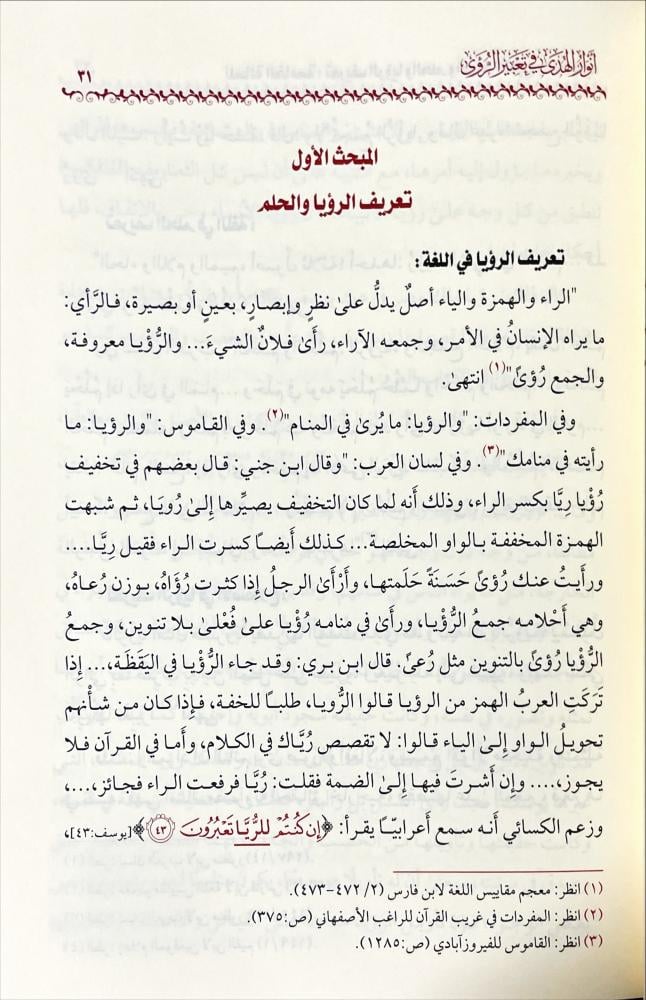 أنوار الهدى في تعبير الرؤى
٣١
المبحث الأول
تعريف الرؤيا والحلم
تعريف الرؤيا في اللغة:
"الراء والهمزة والياء أصلٌ يدلُّ علىٰ نظرٍ وإبصارٍ، بعينٍ أو بصيرة، فالرَّأي:
ما يراه الإنسانُ في الأمر، وجمعه الآراء، رأىٰ فلانٌ الشيءَ... والرُّؤْيا معروفة،
والجمع رُؤىً"(١) انتهىٰ.
وفي المفردات: "والرؤيا: ما يُرىٰ في المنام"(٢). وفي القاموس: "والرؤيا: ما
رأيته في منامك"(٣). وفي لسان العرب: "وقال ابن جني: قال بعضهم في تخفيف
رُؤْيا رِيَّا بكسر الراء، وذلك أَنه لما كان التخفيف يصيِّرها إِلىٰ رُويَا، ثم شبهت
الهمزة المخففة بالواو المخلصة... كذلك أَيضًا كسرت الراء فقيل رِيَّا....
ورأَيتُ عنك رُؤىً حَسَنَةً حَلَمتها، وأَرْأَىٰ الرجلُ إِذا كثرت رُؤَاهُ، بوزن رُعاهُ،
وهي أَحْلامه جمعُ الرُّؤْيا، ورأَىٰ في منامه رُؤْيا علىٰ فُعْلىٰ بلا تنوين، وجمعُ
الرُّؤْيا رُؤىً بالتنوين مثل رُعىً. قال ابن بري: وقد جاء الرُّؤْيا في اليَقَظَة،... إِذا
تَرَكَتِ العربُ الهمز من الرؤيا قالوا الرُّويا، طلبًا للخفة، فإِذا كان من شأْنهم
تحويلُ الواو إِلىٰ الياء قالوا: لا تقصص رُيَّاك في الكلام، وأَما في القرآن فلا
يجوز،.... وإِن أَشرتَ فيها إِلىٰ الضمة فقلت: رُيَّا فرفعت الراء فجائز،...،
وزعم الكسائي أَنه سمع أَعرابيًّا يقرأ: ﴿إِن كُنتُمْ لِلرُّيَّا تَعْبُرُونَ ٤٣﴾[يوسف:٤٣]،
(١) انظر: معجم مقاييس اللغة لابن فارس (٢/ ٤٧٢-٤٧٣).
(٢) انظر: المفردات في غريب القرآن للراغب الأصفهاني (ص:٣٧٥).
(٣) انظر: القاموس للفيروزآبادي (ص:١٢٨٥).